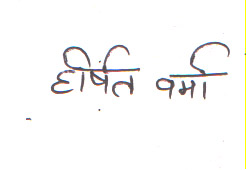 हर्षित वर्मा